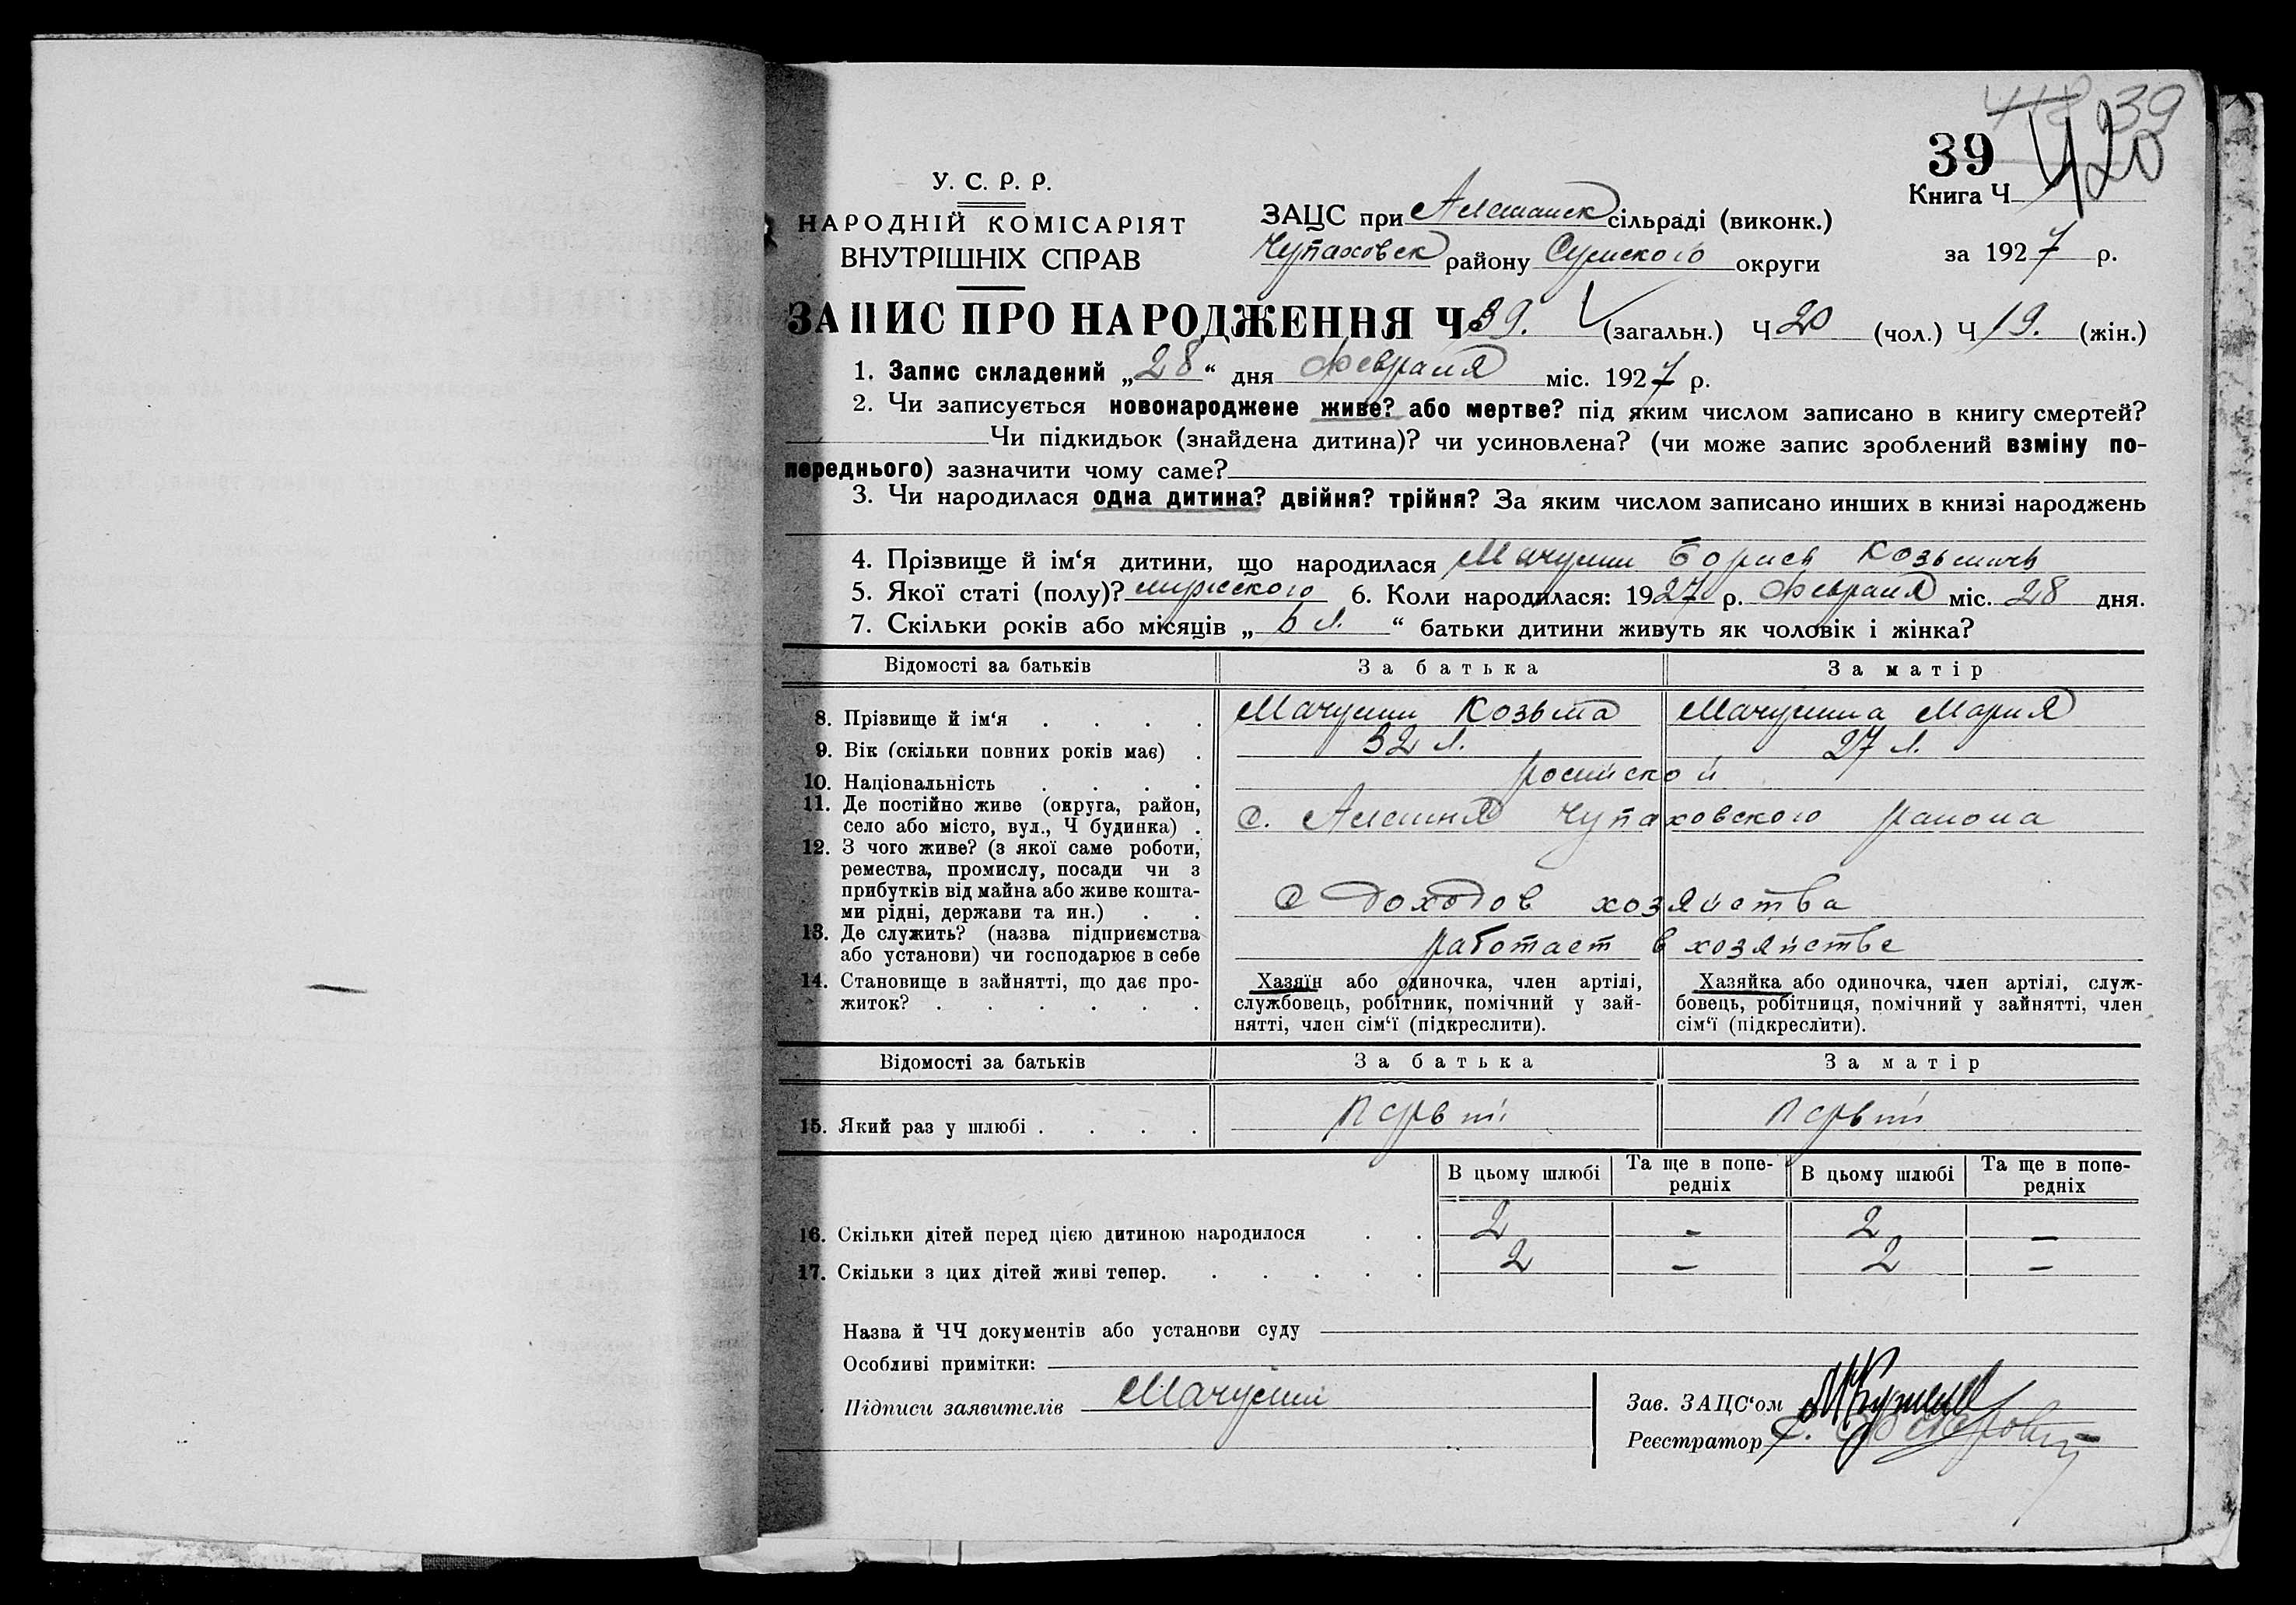 418 39
39 420
У. С. Р. Р.
НАРОДНІЙ КОМІСАРІЯТ
ВНУТРІШНІХ СПРАВ
ЗАЦС при Алешанск сільраді (виконк.)
Чупаховск району Сумского округи
Книга Ч
за 1927 р.
ЗАПИС ПРО НАРОДЖЕННЯ Ч 39. (загальн.) Ч 20 (чол.) Ч 19. (жін.)
1. Запис складений „28“ дня Февраля міс. 1927 р.
2. Чи записується новонароджене живе? або мертве? під яким числом записано в книгу смертей?
Чи підкидьок (знайдена дитина)? чи усиновлена? (чи може запис зроблений взміну по-
переднього) зазначити чому саме?
3. Чи народилася одна дитина? двійня? трійня? За яким числом записано инших в книзі народжень
4. Прізвище й ім‘я дитини, що народилася Мачулин Борис Козьмичь
5. Якої статі (полу)? мужского 6. Коли народилася: 1927 р. Февраля міс. 28 дня.
7. Скільки років або місяців „6 л.“ батьки дитини живуть як чоловік і жінка?
Відомості за батьків За батька За матір
8. Прізвище й ім‘я . . . . Мачулин Козьма Мачулина Мария
9. Вік (скільки повних років має) . 32 л. 27 л.
10. Національність . . . . росийской
11. Де постійно живе (округа, район,
село або місто, вул., Ч будинка) . с. Алешня Чупаховского района
12. З чого живе? (з якої саме роботи,
ремества, промислу, посади чи з
прибутків від майна або живе кошта-
ми рідні, держави та ин.) . . С доходов хозяйства
13. Де служить? (назва підприємства
або установи) чи господарює в себе работает в хозяйстве
14. Становище в зайнятті, що дає про-
житок? . . . . . .
Хазяїн або одиночка, член артілі,
службовець, робітник, помічний у зай-
нятті, член сім‘ї (підкреслити).
Хазяйка або одиночка, член артілі, служ-
бовець, робітниця, помічний у зайнятті, член
сім‘ї (підкреслити).
Відомості за батьків За батька За матір
15. Який раз у шлюбі . . . . первый первый
В цьому шлюбі Та ще в попе-
редніх В цьому шлюбі Та ще в попе-
редніх
16. Скільки дітей перед цією дитиною народилося . . 2 – 2 –
17. Скільки з цих дітей живі тепер. . . . . . 2 – 2 –
Назва й ЧЧ документів або установи суду
Особливі примітки:
Підписи заявителів Мачулин
Зав. ЗАЦС‘ом
Реєстратор